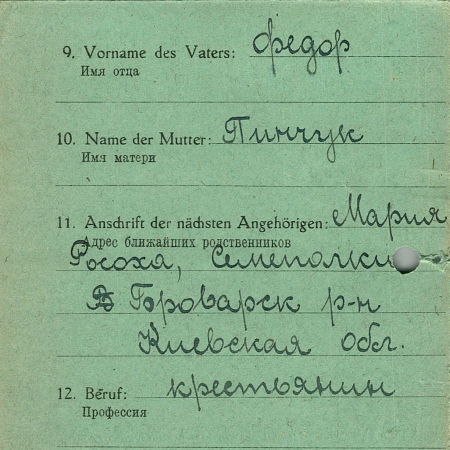 9. Vorname des Vaters: федор
Имя отца
10. Name der Mutter: Пинчук
Имя матери
11. Anschrift der nächsten Angehörigen: Мария
Адрес ближайших родственников
Росоха, Семеполки
Броварск р-н
Киевская обл.
12. Beruf: крестьянин
Профессия